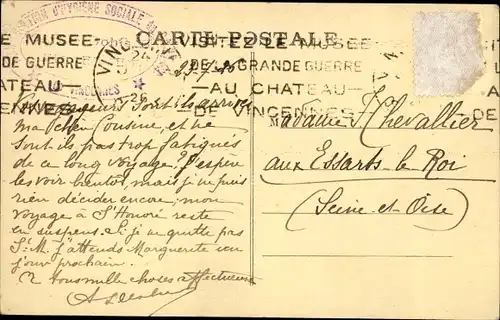 CARTE POSTALE
VISITEZ LE MUSEE
DE LA GRANDE GUERRE
AU CHATEAU
DE VINCENNES
E MUSEE
DE GUERRE
ATEAU
ENNES
D'HYGIENE SOCIALE
VINCENNES
VIN
23-7-
Vos voyageurs sont ils arrivés
ma petite Cousine, et ne
sont ils pas trop fatigués
de ce long voyage? J'espère
les voir bientôt, mais je ne puis
rien décider encore; mon
voyage à St Honoré reste
en suspens. Si je ne quitte pas
St-M. j'attends Marguerite un
jour prochain.
2 tous mille choses affectueuses
Madame Chevallier
aux Essarts-le-Roi
(Seine-et-Oise)